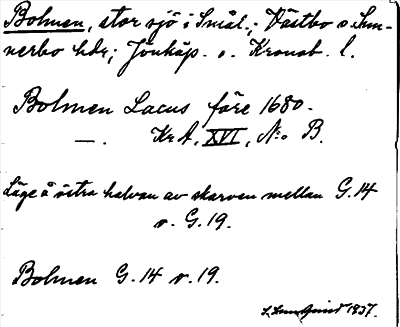 Bolmen, stor sjö i Smål.; Västbo o. Sun-
nerbo hdr; Jönköp. o. Kronob. l.
Bolmen Lacus före 1680.
—. KrA, XVI, No B.
Läge å östra halvan av skarven mellan G. 14
o. G. 19.
Bolmen G. 14 o. 19.
S. Lundquist 1937.